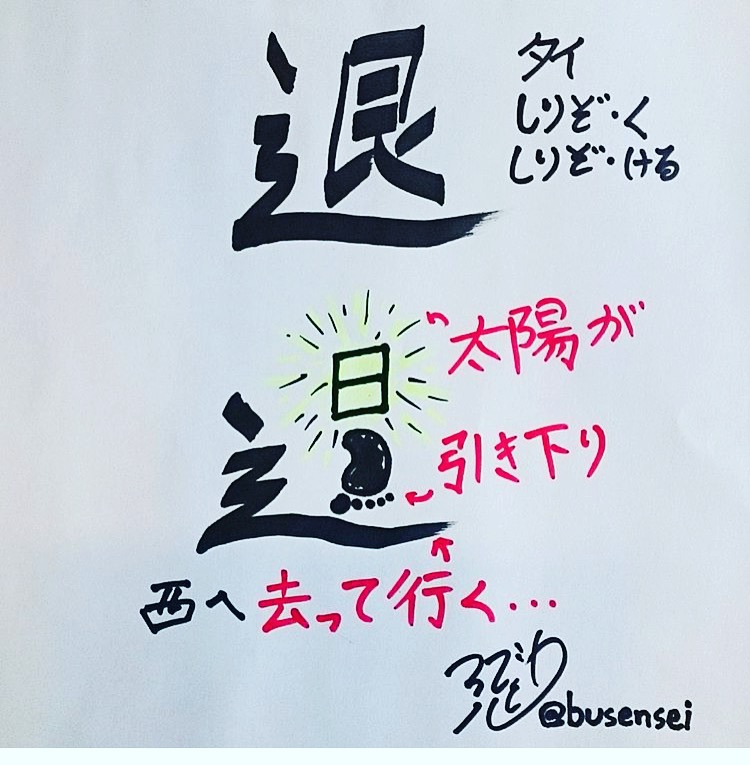 退
タイ
しりぞ・く
しりぞ・ける
日
太陽が
引き下り
西へ去って行く...
@busensei